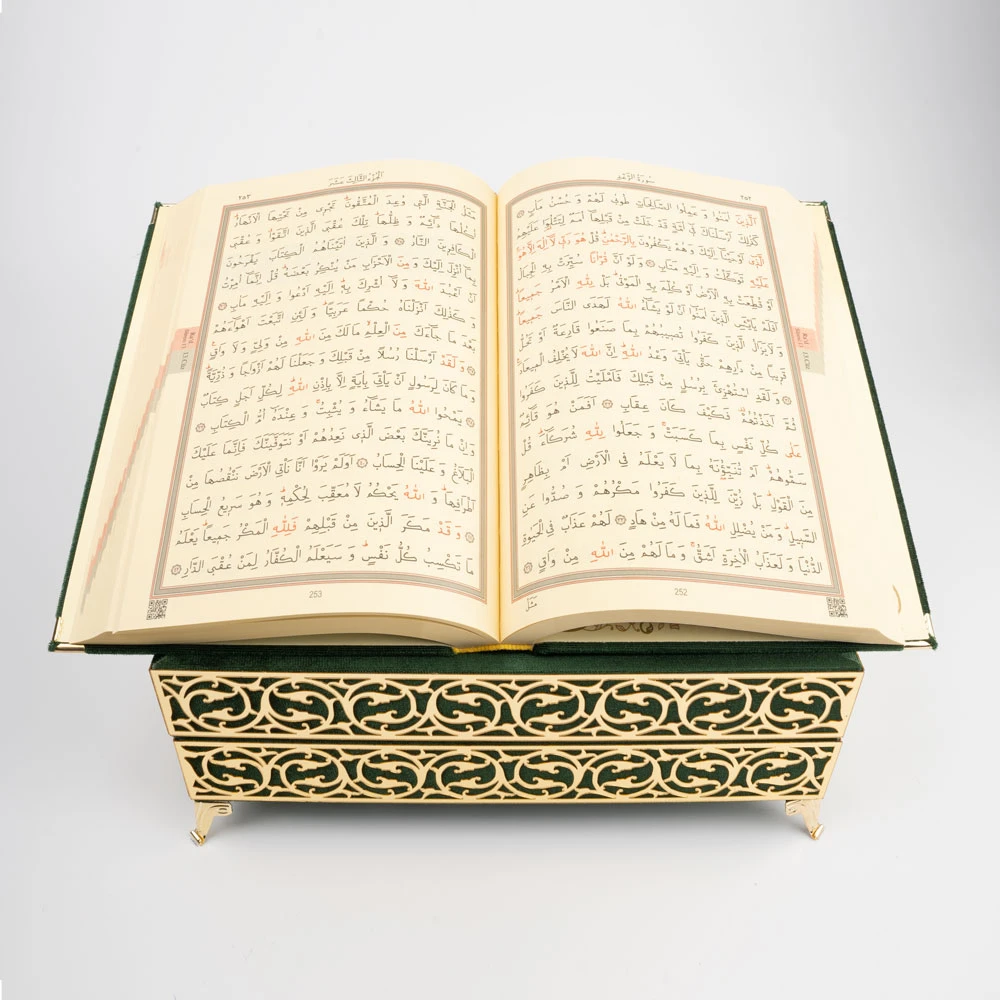 سُورَةُ الرَّعْدِ
٢٥٢
اَلَّذِينَ اٰمَنُوا وَ عَمِلُوا الصَّالِحَاتِ طُوبٰى لَهُمْ وَ حُسْنُ مَاٰبٍ
كَذٰلِكَ اَرْسَلْنَاكَ فِٓي اُمَّةٍ قَدْ خَلَتْ مِنْ قَبْلِهَٓا اُمَمٌ لِتَتْلُوَا۬ عَلَيْهِمُ
الَّذِٓي اَوْحَيْنَٓا اِلَيْكَ وَ هُمْ يَكْفُرُونَ بِالرَّحْمٰنِ قُلْ هُوَ رَبِّي لَٓا اِلٰهَ اِلَّا هُوَ
عَلَيْهِ تَوَكَّلْتُ وَ اِلَيْهِ مَتَابِ وَ لَوْ اَنَّ قُرْاٰنًا سُيِّرَتْ بِهِ الْجِبَالُ
اَوْ قُطِّعَتْ بِهِ الْاَرْضُ اَوْ كُلِّمَ بِهِ الْمَوْتٰى بَلْ لِلّٰهِ الْاَمْرُ جَمِيعًا
اَفَلَمْ يَايْـَٔسِ الَّذِينَ اٰمَنُٓوا اَنْ لَوْ يَشَٓاءُ اللّٰهُ لَهَدَى النَّاسَ جَمِيعًا
وَ لَا يَزَالُ الَّذِينَ كَفَرُوا تُصِيبُهُمْ بِمَا صَنَعُوا قَارِعَةٌ اَوْ تَحُلُّ
قَرِيبًا مِنْ دَارِهِمْ حَتّٰى يَاْتِيَ وَعْدُ اللّٰهِ اِنَّ اللّٰهَ لَا يُخْلِفُ الْمِيعَادَ
وَ لَقَدِ اسْتُهْزِئَ بِرُسُلٍ مِنْ قَبْلِكَ فَاَمْلَيْتُ لِلَّذِينَ كَفَرُوا
ثُمَّ اَخَذْتُهُمْ فَكَيْفَ كَانَ عِقَابِ اَفَمَنْ هُوَ قَٓائِمٌ
عَلٰى كُلِّ نَفْسٍ بِمَا كَسَبَتْ وَ جَعَلُوا لِلّٰهِ شُرَكَٓاءَ قُلْ
سَمُّوهُمْ اَمْ تُنَبِّؤُ۫نَهُ بِمَا لَا يَعْلَمُ فِي الْاَرْضِ اَمْ بِظَاهِرٍ
مِنَ الْقَوْلِ بَلْ زُيِّنَ لِلَّذِينَ كَفَرُوا مَكْرُهُمْ وَ صُدُّوا عَنِ
السَّبِيلِ وَ مَنْ يُضْلِلِ اللّٰهُ فَمَا لَهُ مِنْ هَادٍ لَهُمْ عَذَابٌ فِي الْحَيٰوةِ
الدُّنْيَا وَ لَعَذَابُ الْاٰخِرَةِ اَشَقُّ وَ مَا لَهُمْ مِنَ اللّٰهِ مِنْ وَاقٍ
252
مَثَلُ
اَلْجُزْءُ الثَّالِثَ عَشَرَ
٢٥٣
مَثَلُ الْجَنَّةِ الَّتِي وُعِدَ الْمُتَّقُونَ تَجْرِي مِنْ تَحْتِهَا الْاَنْهَارُ
اُكُلُهَا دَٓائِمٌ وَ ظِلُّهَا تِلْكَ عُقْبَى الَّذِينَ اتَّقَوْا وَ عُقْبَى
الْكَافِرِينَ النَّارُ وَ الَّذِينَ اٰتَيْنَاهُمُ الْكِتَابَ يَفْرَحُونَ
بِمَٓا اُنْزِلَ اِلَيْكَ وَ مِنَ الْاَحْزَابِ مَنْ يُنْكِرُ بَعْضَهُ قُلْ اِنَّمَٓا اُمِرْتُ
اَنْ اَعْبُدَ اللّٰهَ وَ لَٓا اُشْرِكَ بِهِ اِلَيْهِ اَدْعُوا وَ اِلَيْهِ مَاٰبِ
وَ كَذٰلِكَ اَنْزَلْنَاهُ حُكْمًا عَرَبِيًّا وَ لَئِنِ اتَّبَعْتَ اَهْوَٓاءَهُمْ
بَعْدَ مَا جَٓاءَكَ مِنَ الْعِلْمِ مَا لَكَ مِنَ اللّٰهِ مِنْ وَلِيٍّ وَ لَا وَاقٍ
وَ لَقَدْ اَرْسَلْنَا رُسُلًا مِنْ قَبْلِكَ وَ جَعَلْنَا لَهُمْ اَزْوَاجًا وَ ذُرِّيَّةً
وَ مَا كَانَ لِرَسُولٍ اَنْ يَاْتِيَ بِاٰيَةٍ اِلَّا بِاِذْنِ اللّٰهِ لِكُلِّ اَجَلٍ كِتَابٌ
يَمْحُوا اللّٰهُ مَا يَشَٓاءُ وَ يُثْبِتُ وَ عِنْدَهُٓ اُمُّ الْكِتَابِ
وَ اِنْ مَا نُرِيَنَّكَ بَعْضَ الَّذِي نَعِدُهُمْ اَوْ نَتَوَفَّيَنَّكَ فَاِنَّمَا عَلَيْكَ
الْبَلَاغُ وَ عَلَيْنَا الْحِسَابُ اَوَلَمْ يَرَوْا اَنَّا نَاْتِي الْاَرْضَ نَنْقُصُهَا مِنْ
اَطْرَافِهَا وَ اللّٰهُ يَحْكُمُ لَا مُعَقِّبَ لِحُكْمِهِ وَ هُوَ سَرِيعُ الْحِسَابِ
وَ قَدْ مَكَرَ الَّذِينَ مِنْ قَبْلِهِمْ فَلِلّٰهِ الْمَكْرُ جَمِيعًا يَعْلَمُ
مَا تَكْسِبُ كُلُّ نَفْسٍ وَ سَيَعْلَمُ الْكُفَّارُ لِمَنْ عُقْبَى الدَّارِ
253